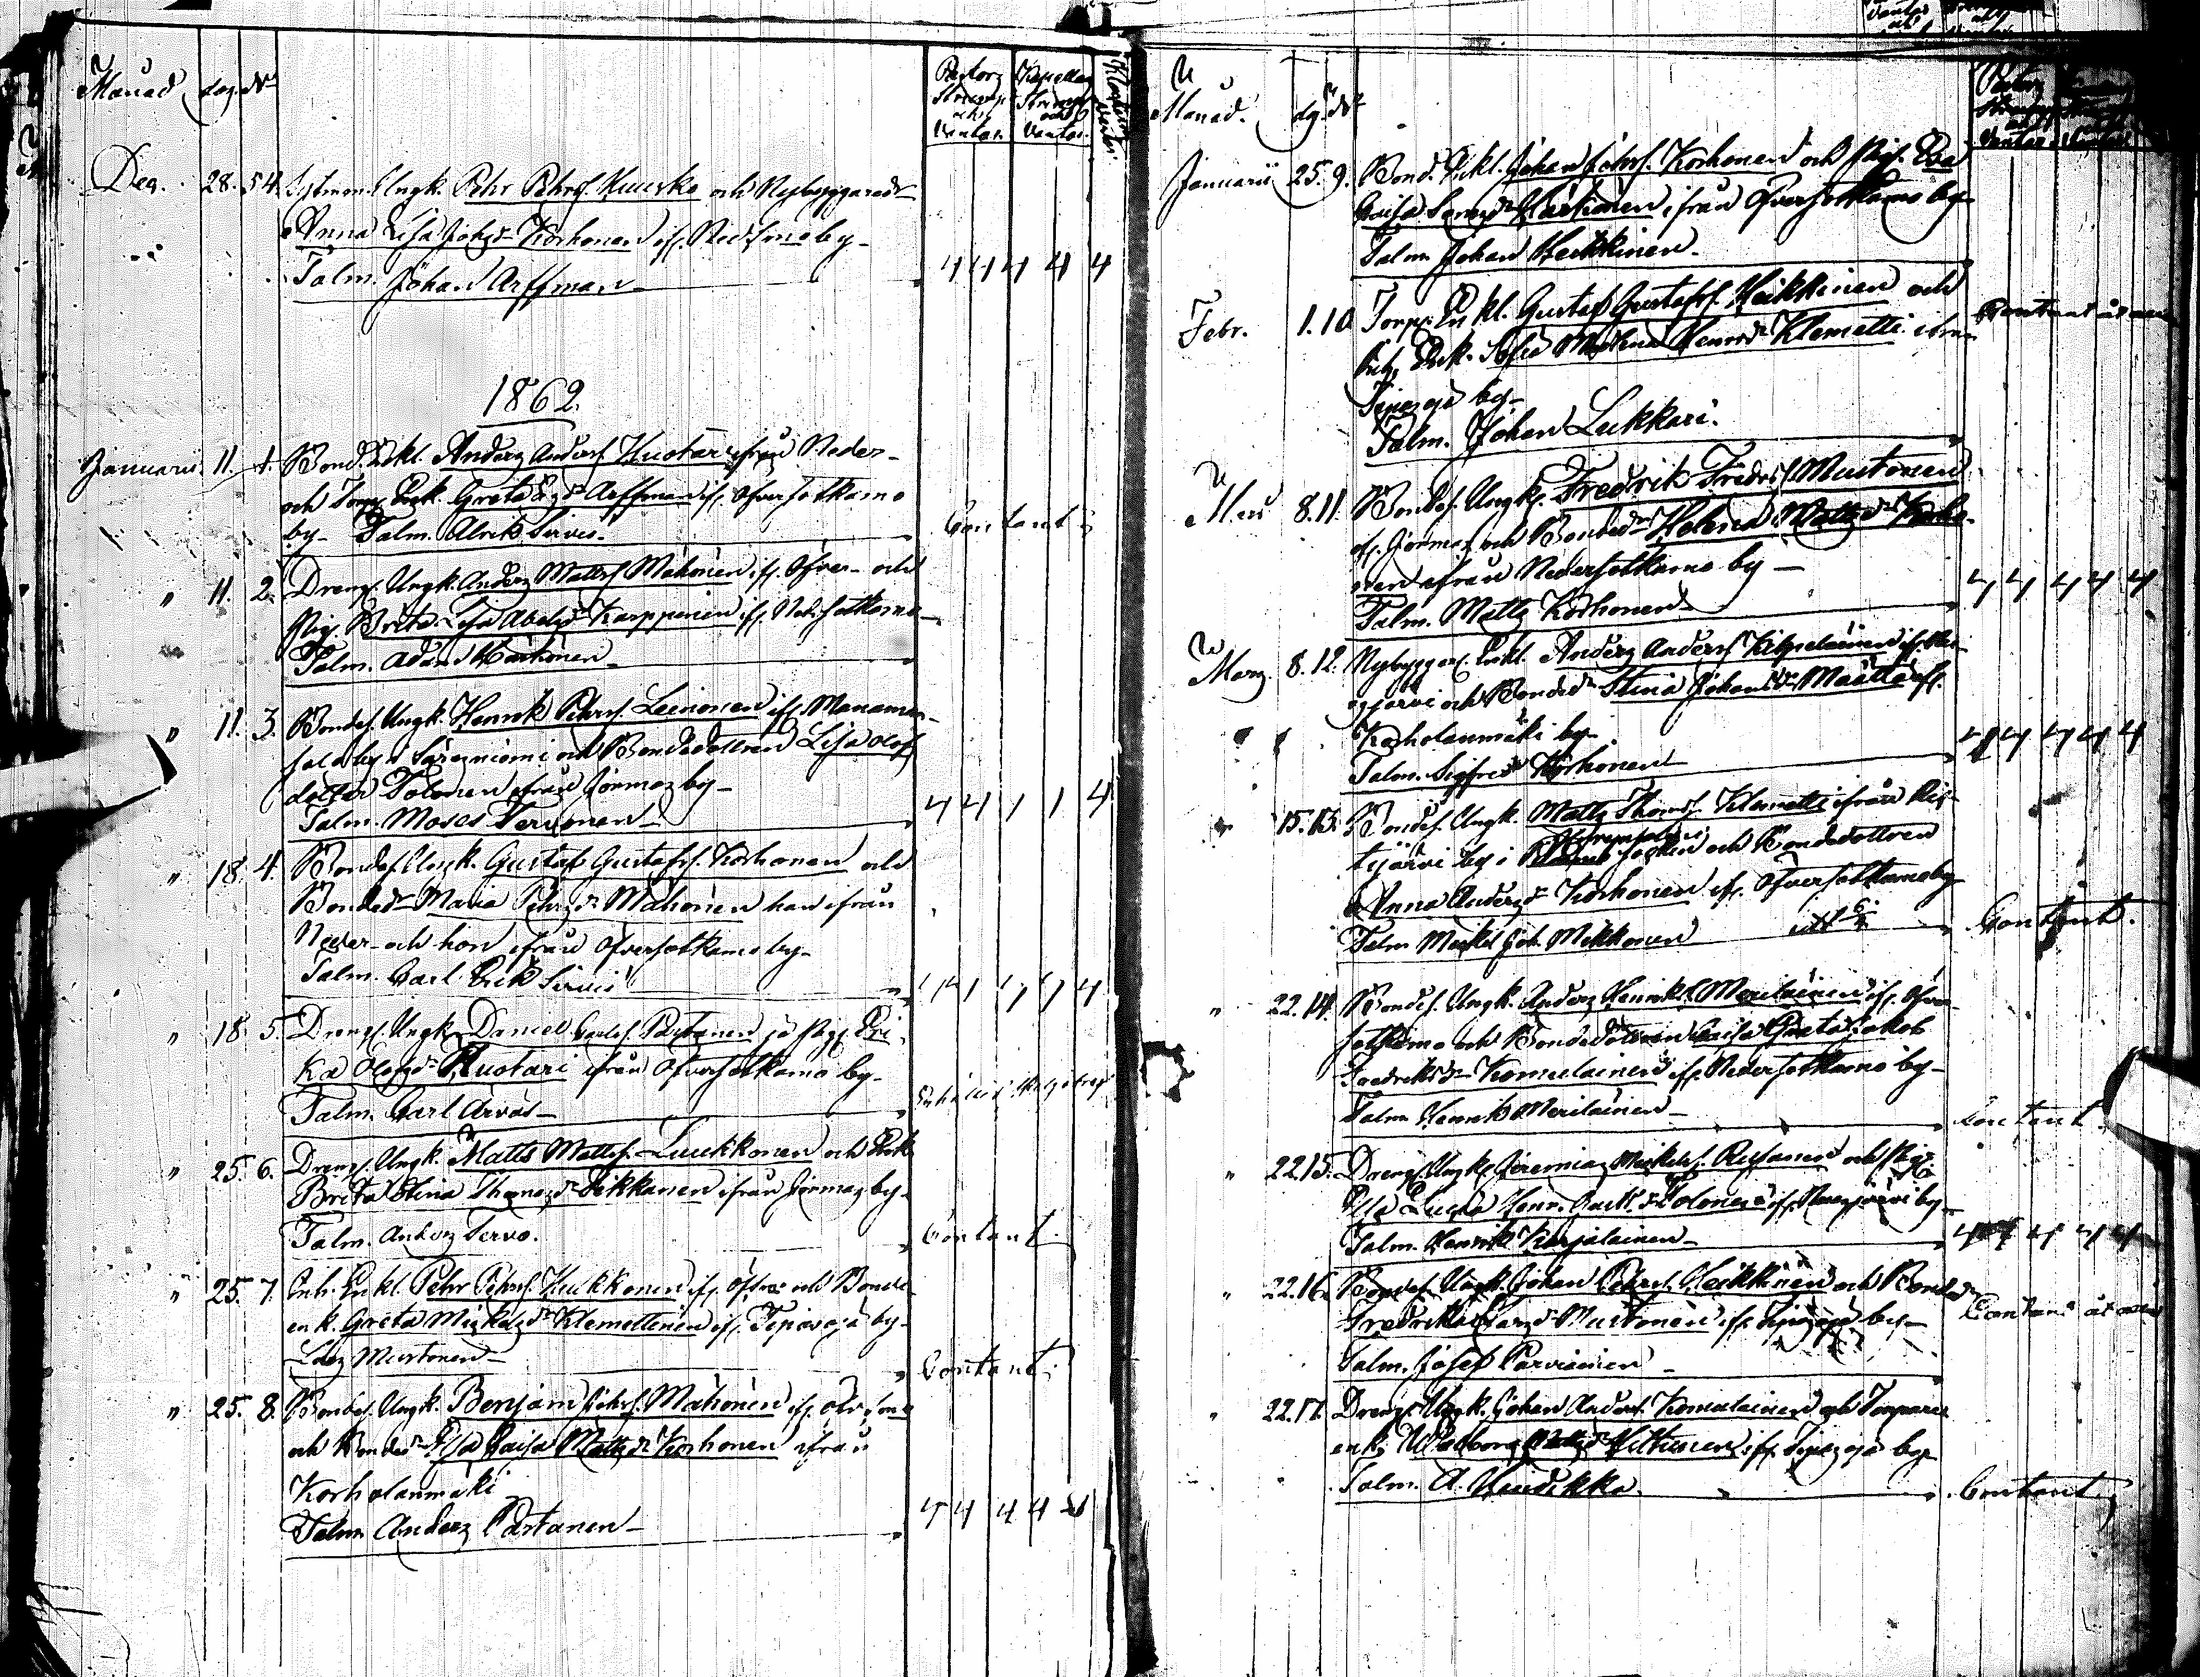 Månad dag. Nr
Pastorz Strump och Vantar. Kapellan Strump och Vantar.
Dec. 28. 54. Ungk. Pehr Pehrs. Kuusko och Nybyggaredr
Anna Lisa Johsdr Korhonen if. by
Talm. Johan Arffman 4 4 4 4 4
1862.
Januarii 11. 1. Bond. Enkl. Anderz Anders. Huotari ifrån Neder-
och Torp. Enk. Greta dr Arffman if. Öfversotkamo
by Talm. Ulrik Sirviö. Contant
" 11. 2. Dreng. Ungk. Anderz Matts. Mähönen if. Öfver- och
Pig. Brita Lisa Abelsdr Karppinen if. Nedersotkamo
Talm. Adam Härkönen
" 11. 3. Bondes. Ungk. Henrik Pehrs. Leinonen if. Manamen-
salo by i Säräsniemi och Bondedottren Lisa Olofs
dotter Tolonen ifrån Jormaz by
Talm. Moses Tervonen 4 4 1 1 4
" 18. 4. Bondes. Ungk. Gustaf Gustafs. Korhonen och
Bondedr Maria Pehrsdr Mähönen han ifrån
Neder- och hon ifrån Öfversotkamo by
Talm. Carl Erik Sirviö
" 18 5. Drengs. Ungk. Daniel Carls. Partanen på Pig. Eri
ka Olofsdr Huotari ifrån Öfversotkamo by
Talm. Carl Arvas
" 25 6. Drengs. Ungk. Matts Matts. Luukkonen och Enk.
Brita Stina Thomasdr Pikkanen ifrån Jormaz by
Talm. Anderz Tervo. Contant
" 25. 7. Inh. Enkl. Pehr Pehrs. Kukkonen if. Öfver och Bonde
enk. Greta Mickelsdr Klemettinen if. Tipasoja by
Larz Mustonen Contant
" 25. 8. Bondes. Ungk. Benjam Pehrs. Mähönen if.
och Bondedr Elsa Caisa Mattsdr Korhonen ifrån
Korholanmäki
Talm Anderz Partanen 4 4 4 4 4
Månad. dg. Nr
Januarii 25. 9. Bond. Enkl. Johan Johs. Korhonen och Pig. Eva
Caisa Larsdr Härkönen ifrån Öfversotkamo by
Talm. Johan Heikkinen
Febr. 1. 10 Torp. Enkl. Gustaf Gustafs. Heikkinen och
Inh. Enk. Sofia Henrsdr Klemetti ifrån
Tipasoja by
Talm. Johan Lukkari.
8. 11. Bondes. Ungk. Fredrik Fredrs. Mustonen
if. Jormaz och Bondedr Helena Mattsdr Korho-
nen ifrån Nedersotkamo by
Talm. Matts Korhonen 4 4 4 4 4
Marz. 8. 12. Nybyggars. Enkl. Anderz Anders. Kilpeläinen if.
järvi och Bondedr Stina Johansdr Määttä if.
Korholanmäki by
Talm. Sigfred Korhonen 4 4 4 4 4
" 15. 13. Bondes. Ungk. Matts Thoms. Klemetti ifrån Ris-
tijärvi by i socken och Bondedottren
Anna Andersdr Korhonen if. Öfversotkamo by
Talm Mickel Joh. Mikkonen Contant.
" 22. 14. Bondes. Ungk. Anderz Henriks. Meriläinen if. Öfver
sotkamo och Bondedottren Caisa Greta Jakob
Fredriksdr Komulainen if. Nedersotkamo by
Talm Henrik Meriläinen Contant.
" 22 15. Drengs. Ungk. Jeremiaz Mickels. och Pig.
Elsa Lucia Henr. Tolonen if. by
Talm. Henrik Karjalainen 4 4 4 4 4
" 22. 16. Bondes. Ungk. Johan Pehrs. Heikkinen och Bondedr
Fredrika Larsdr Mustonen if. Tipasoja by
Talm. Josef Parviainen
" 22. 17. Drengs. Ungk. Johan Anders. Komulainen och Torpare
enk. Walborg Mattsdr Hiltunen if. Tipasoja by
Talm. A. Contant